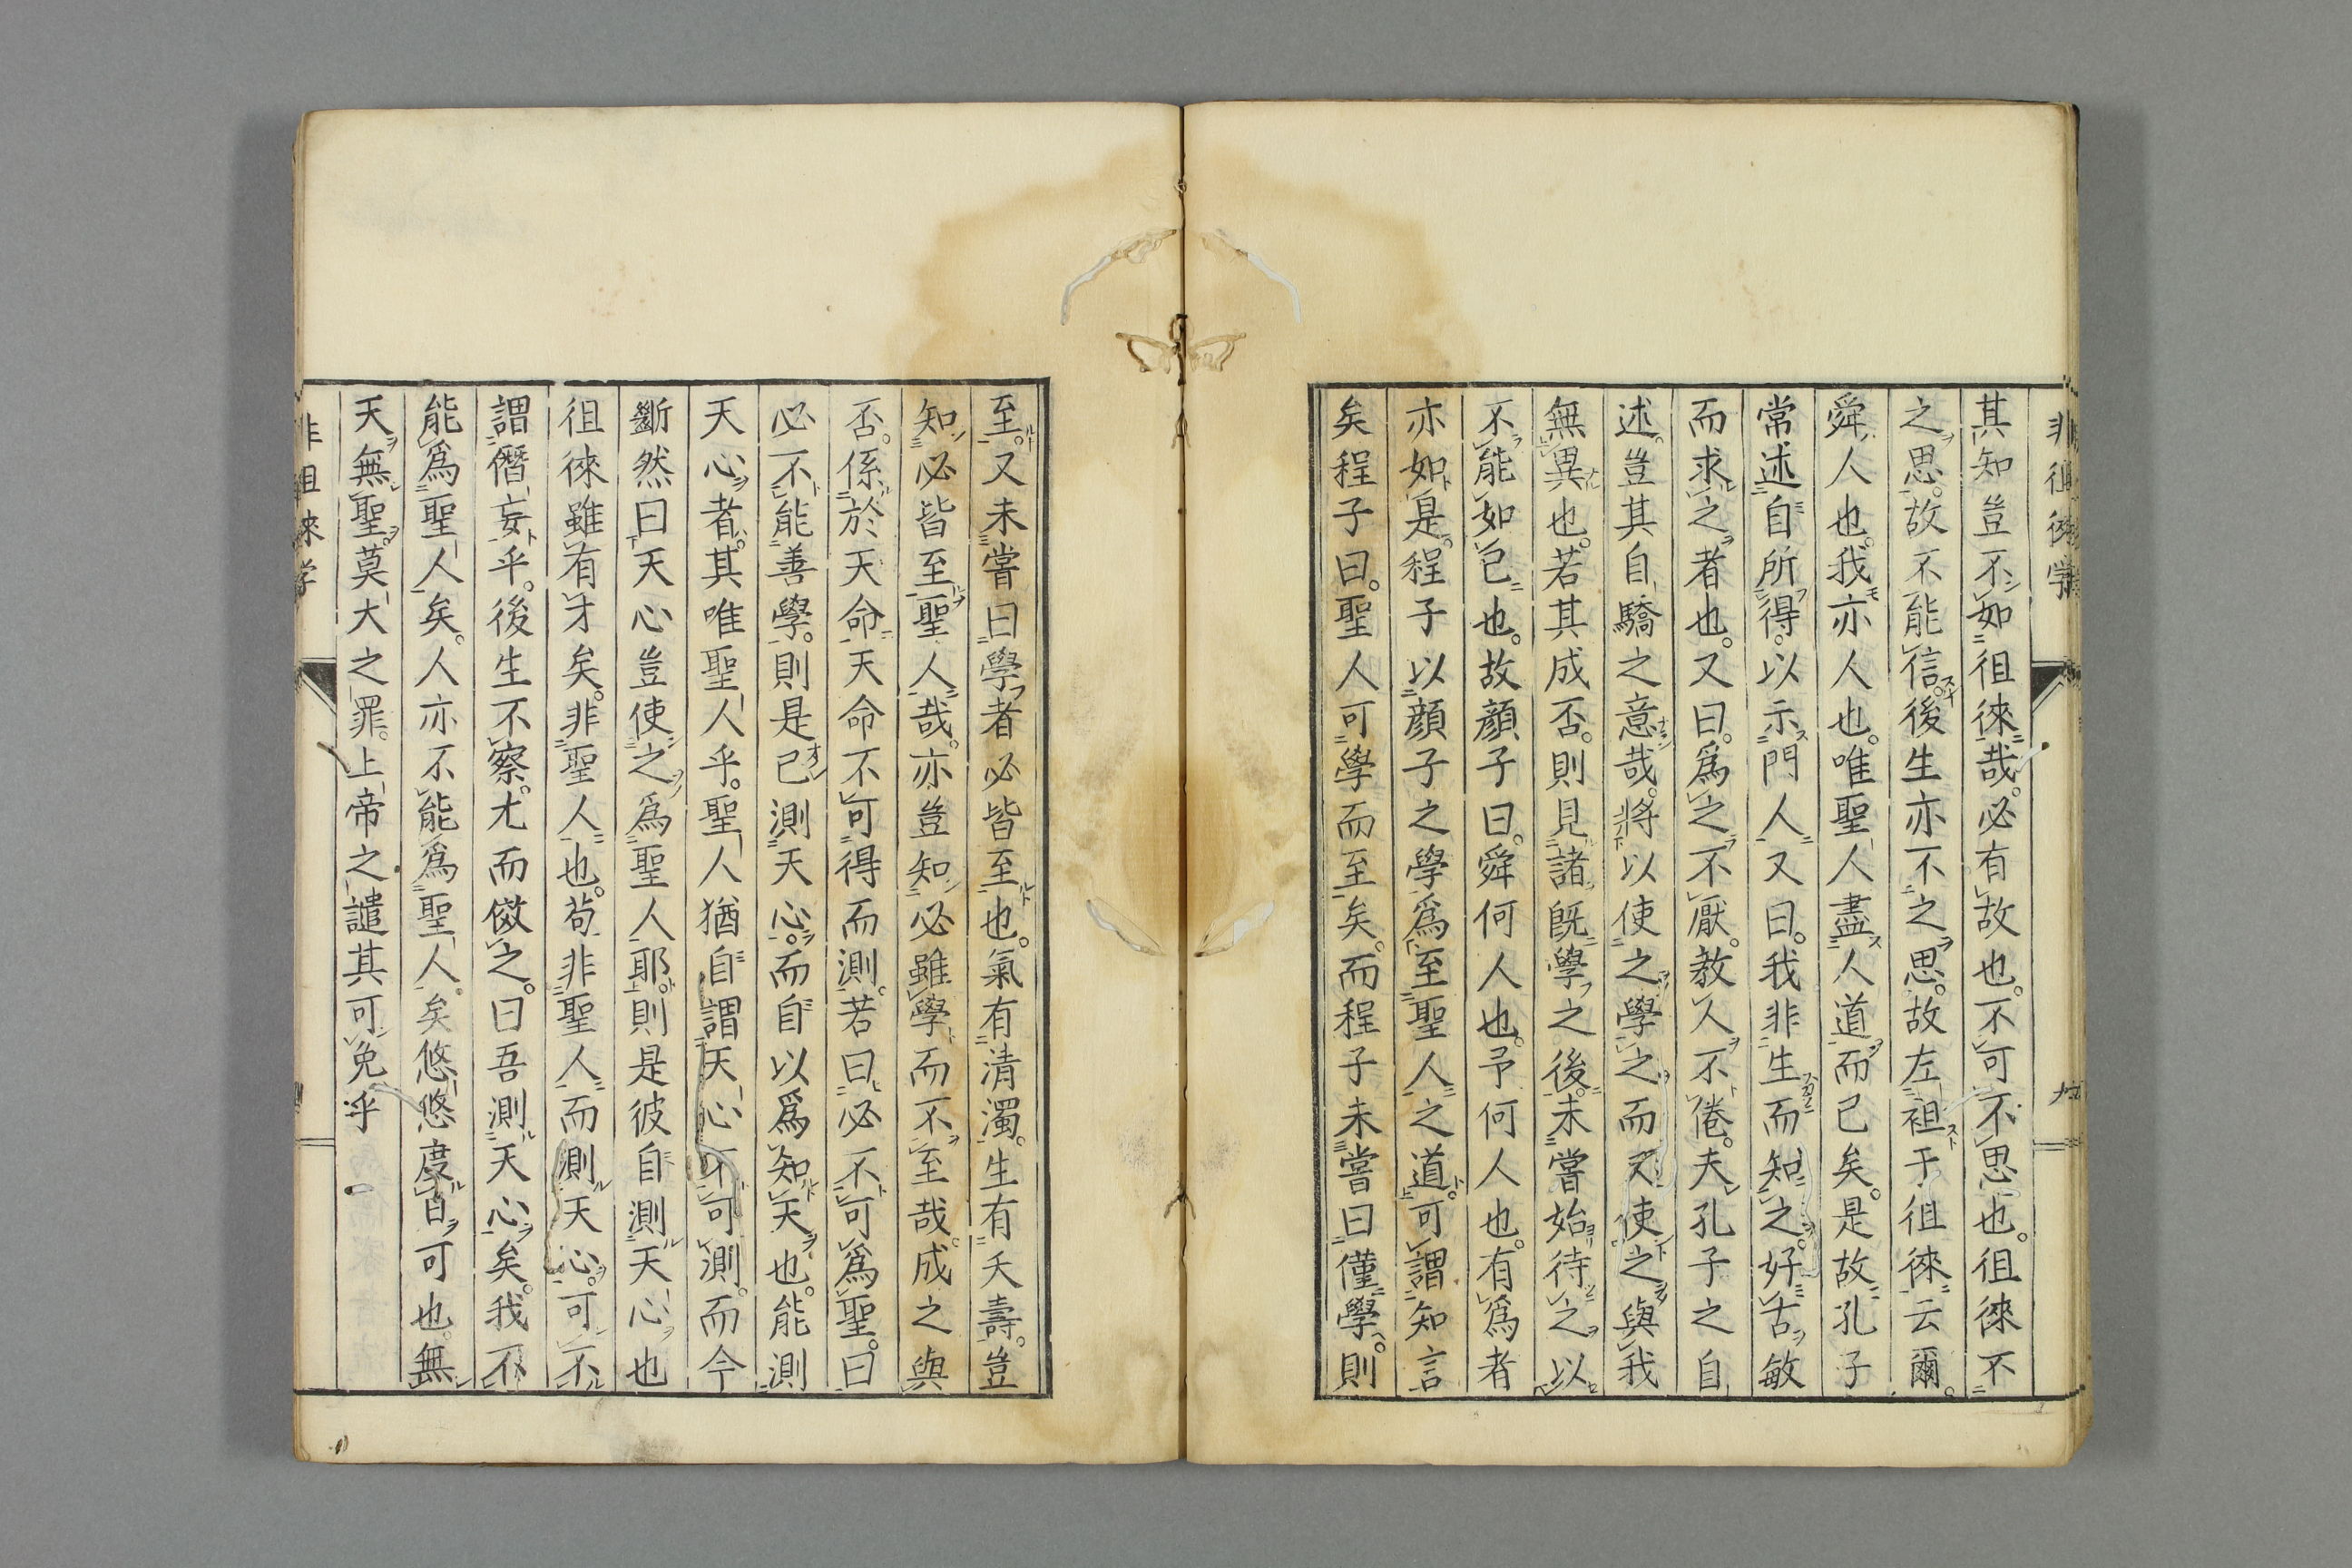 非徂徠学
其知豈不如徂徠哉。必有故也。不可不思也。徂徠不
之思。故不能信。後生亦不之思。故左袒于徂徠云爾。
舜人也。我亦人也。唯聖人盡人道而已矣。是故孔子
常述自所得。以示門人又曰。我非生而知之。好古敏
而求之者也。又曰。爲之不厭。教人不倦。夫孔子之自
述。豈其自驕之意哉。將以使之學之而又使之與我
無異也。若其成否。則見諸既學之後。未嘗始待之以
不能如己也。故顏子曰。舜何人也。予何人也。有爲者
亦如是。程子以顔子之學爲至聖人之道。可謂知言
矣程子曰。聖人可學而至矣。而程子未嘗曰僅學。則
至。又未嘗曰學者必皆至也。氣有清濁。生有夭壽。豈
知必皆至聖人哉。亦豈知必雖學而不至哉。成之與
否。係於天命天命不可得而測。若曰必不可爲聖。曰
必不能善學。則是已測天心。而自以爲知天也。能測
天心者。其唯聖人乎。聖人猶自謂天心不可測。而今
斷然曰天心豈使之爲聖人耶。則是彼自測天心也
徂徠雖有才矣。非聖人也。苟非聖人而測天心。可不
謂僭妄乎。後生不察。尤而傚之。曰吾測天心矣。我不
能爲聖人矣。人亦不能爲聖人矣悠悠度日可也。無
天無聖。莫大之罪。上帝之譴其可免乎
非徂徠学